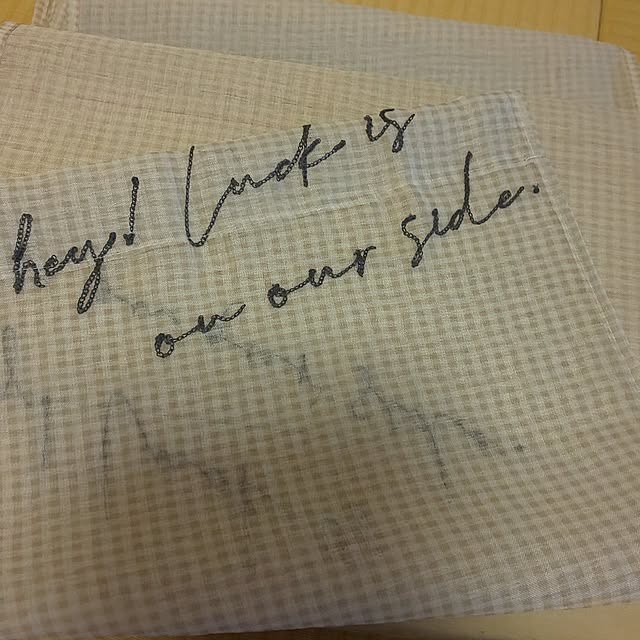 hey! Luck is
on our side.